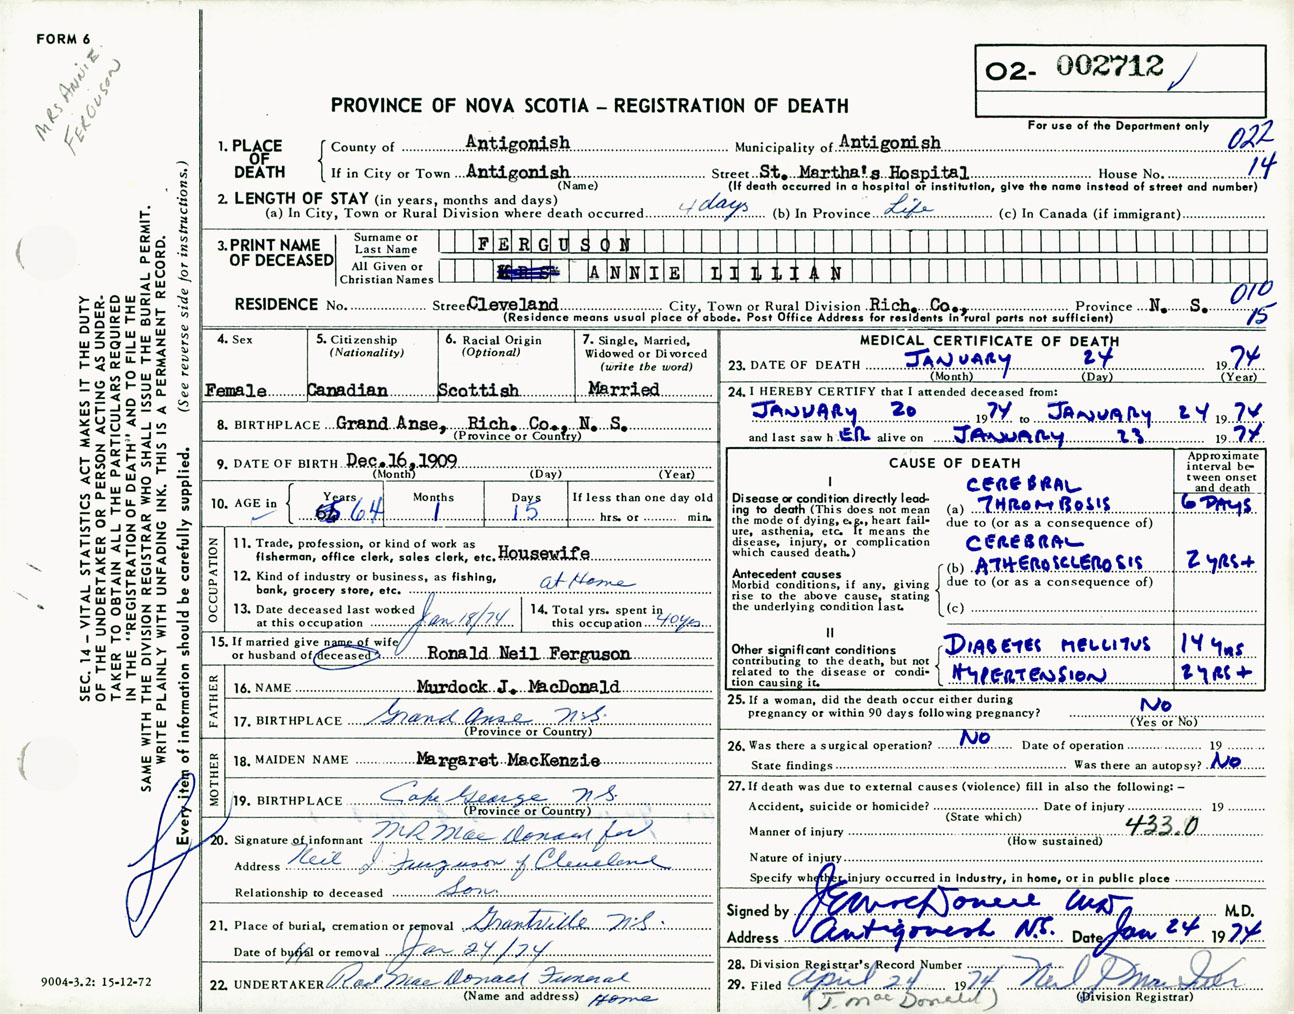 FORM 6
MRS ANNIE
FERGUSON
O2- 002712
PROVINCE OF NOVA SCOTIA – REGISTRATION OF DEATH
For use of the Department only
022
14
1. PLACE OF DEATH
County of Antigonish Municipality of Antigonish
If in City or Town Antigonish Street St. Martha's Hospital House No.
(Name) (If death occurred in a hospital or institution, give the name instead of street and number)
2. LENGTH OF STAY (in years, months and days)
(a) In City, Town or Rural Division where death occurred 4 days (b) In Province Life (c) In Canada (if immigrant)
3. PRINT NAME OF DECEASED
Surname or Last Name FERGUSON
All Given or Christian Names MRS ANNIE LILLIAN
010
15
RESIDENCE No. Street Cleveland City, Town or Rural Division Rich. Co., Province N. S.
(Residence means usual place of abode. Post Office Address for residents in rural parts not sufficient)
SEC. 14 – VITAL STATISTICS ACT MAKES IT THE DUTY
OF THE UNDERTAKER OR PERSON ACTING AS UNDER-
TAKER TO OBTAIN ALL THE PARTICULARS REQUIRED
IN THE "REGISTRATION OF DEATH" AND TO FILE THE
SAME WITH THE DIVISION REGISTRAR WHO SHALL ISSUE THE BURIAL PERMIT.
WRITE PLAINLY WITH UNFADING INK. THIS IS A PERMANENT RECORD.
Every item of information should be carefully supplied. (See reverse side for instructions.)
4. Sex
Female
5. Citizenship
(Nationality)
Canadian
6. Racial Origin
(Optional)
Scottish
7. Single, Married,
Widowed or Divorced
(write the word)
Married
8. BIRTHPLACE Grand Anse, Rich. Co., N. S.
(Province or Country)
9. DATE OF BIRTH Dec. 16, 1909
(Month) (Day) (Year)
10. AGE in Years Months Days If less than one day old
64 1 15 hrs. or min.
OCCUPATION
11. Trade, profession, or kind of work as
fisherman, office clerk, sales clerk, etc. Housewife
12. Kind of industry or business, as fishing,
bank, grocery store, etc. at Home
13. Date deceased last worked
at this occupation Jan 18/74
14. Total yrs. spent in
this occupation 40 yrs
15. If married give name of wife
or husband of deceased Ronald Neil Ferguson
FATHER
16. NAME Murdock J. MacDonald
17. BIRTHPLACE Grand Anse N.S.
(Province or Country)
MOTHER
18. MAIDEN NAME Margaret MacKenzie
19. BIRTHPLACE Cape George N.S.
(Province or Country)
20. Signature of informant MR Mac Donald for
Address Neil J. Ferguson of Cleveland
Relationship to deceased Son.
21. Place of burial, cremation or removal Grantville N.S.
Date of burial or removal Jan 24/74
22. UNDERTAKER Rod Mac Donald Funeral
(Name and address) Home
9004-3.2: 15-12-72
MEDICAL CERTIFICATE OF DEATH
23. DATE OF DEATH JANUARY 24 1974
(Month) (Day) (Year)
24. I HEREBY CERTIFY that I attended deceased from:
JANUARY 20 1974 to JANUARY 24 1974
and last saw h ER alive on JANUARY 23 1974
CAUSE OF DEATH
Approximate
interval be-
tween onset
and death
I
Disease or condition directly lead-
ing to death (This does not mean
the mode of dying, e.g., heart fail-
ure, asthenia, etc. It means the
disease, injury, or complication
which caused death.)
CEREBRAL
(a) THROMBOSIS 6 DAYS
due to (or as a consequence of)
CEREBRAL
(b) ATHEROSCLEROSIS 2 YRS+
due to (or as a consequence of)
(c)
Antecedent causes
Morbid conditions, if any, giving
rise to the above cause, stating
the underlying condition last.
II
Other significant conditions
contributing to the death, but not
related to the disease or condi-
tion causing it.
DIABETES MELLITUS 14 YRS
HYPERTENSION 2 YRS+
25. If a woman, did the death occur either during
pregnancy or within 90 days following pregnancy? No
(Yes or No)
26. Was there a surgical operation? No Date of operation 19
State findings Was there an autopsy? No
27. If death was due to external causes (violence) fill in also the following: –
Accident, suicide or homicide? Date of injury 19
(State which)
433.0
Manner of injury
(How sustained)
Nature of injury
Specify whether injury occurred in industry, in home, or in public place
Signed by M.D.
Address Antigonish N.S. Date Jan 24 1974
28. Division Registrar's Record Number
29. Filed April 24 1974
(J. MacDonald) (Division Registrar)